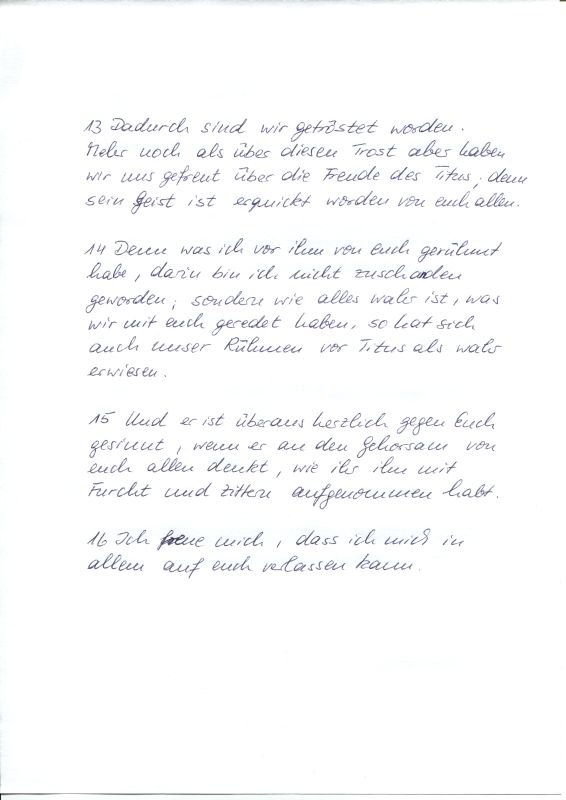 13 Dadurch sind wir getröstet worden.
Mehr noch als über diesen Trost aber haben
wir uns gefreut über die Freude des Titus; denn
sein Geist ist erquickt worden von euch allen.
14 Denn was ich vor ihm von Euch gerühmt
habe, darin bin ich nicht zuschanden
geworden; sondern wie alles wahr ist, was
wir mit euch geredet haben, so hat sich
auch unser Rühmen vor Titus als wahr
erwiesen.
15 Und er ist überaus herzlich gegen Euch
gesinnt, wenn er an den Gehorsam von
euch allen denkt, wie ihr ihn mit
Furcht und Zittern aufgenommen habt.
16 Ich freue mich, dass ich mich in
allem auf euch verlassen kann.